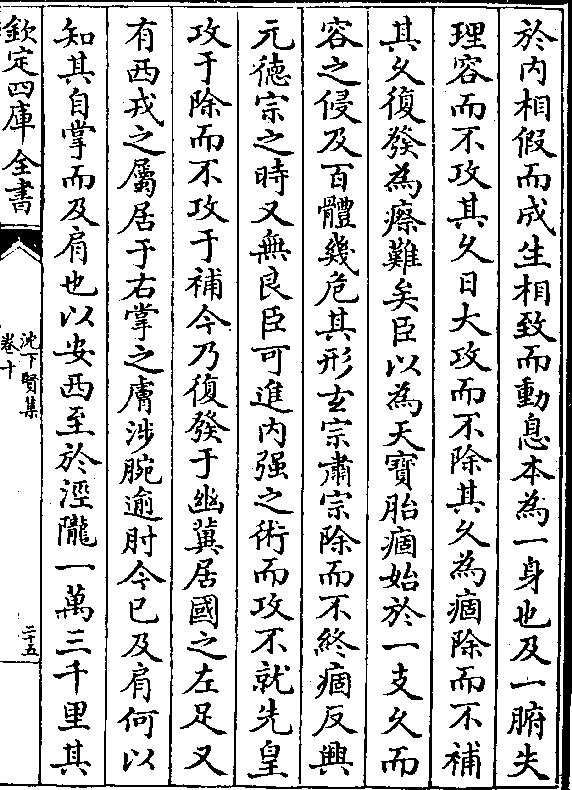 於内相假而成生相致而動息本為一身也及一腑失
理容而不攻其久日大攻而不除其久為痼除而不補
其久復發為瘵難矣臣以為天寶胎痼始於一支久而
容之侵及百體幾危其形玄宗肅宗除而不終痼反興
元徳宗之時又無良臣可進内强之術而攻不就先皇
攻于除而不攻于補今乃復發于幽冀居國之左足又
有西戎之屬居于右掌之膚涉腕逾肘今已及肩何以
知其自掌而及肩也以安西至於涇隴一萬三千里其
欽定四庫全書
沈下賢集
卷十
二十五